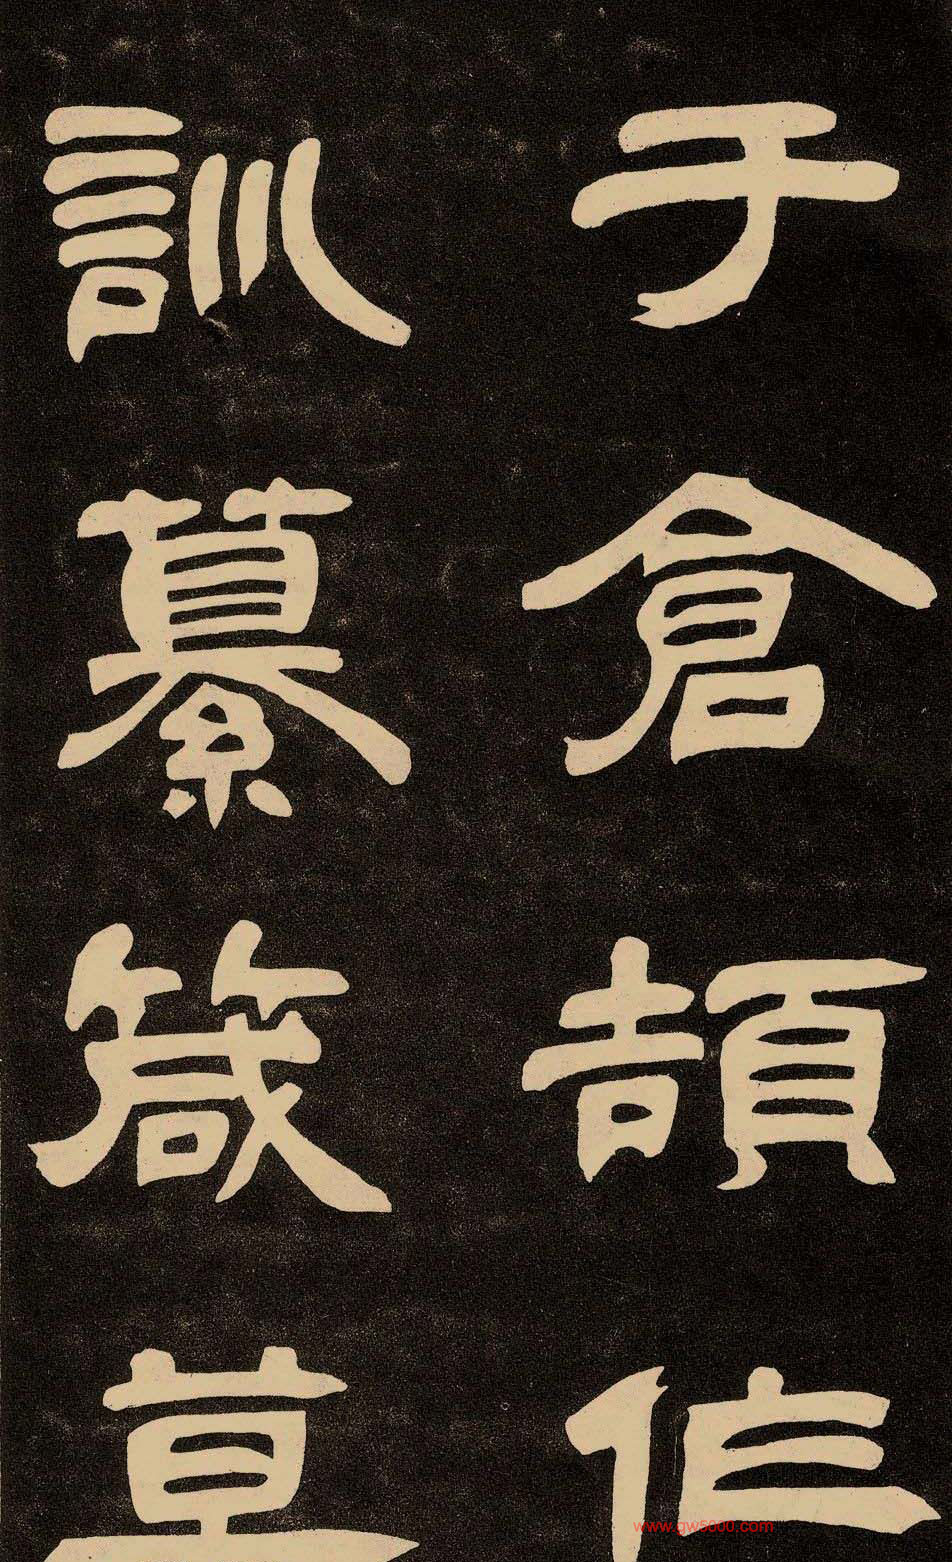 于倉頡作
訓纂箴莫
www.gw5000.com